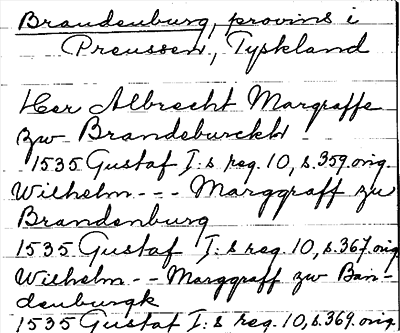 Brandenburg, provins i
Preussen, Tyskland
Her Albrecht Margraffe
zw Brandeburckh
1535 Gustaf I:s reg. 10, s. 359. orig.
Wilhelm - - - Marggraff zu
Brandenburg
1535 Gustaf I:s reg. 10, s. 367. orig
Wilhelm - - Marggraff zw Ban-
denburgk
1535 Gustaf I:s reg. 10, s. 369. orig.